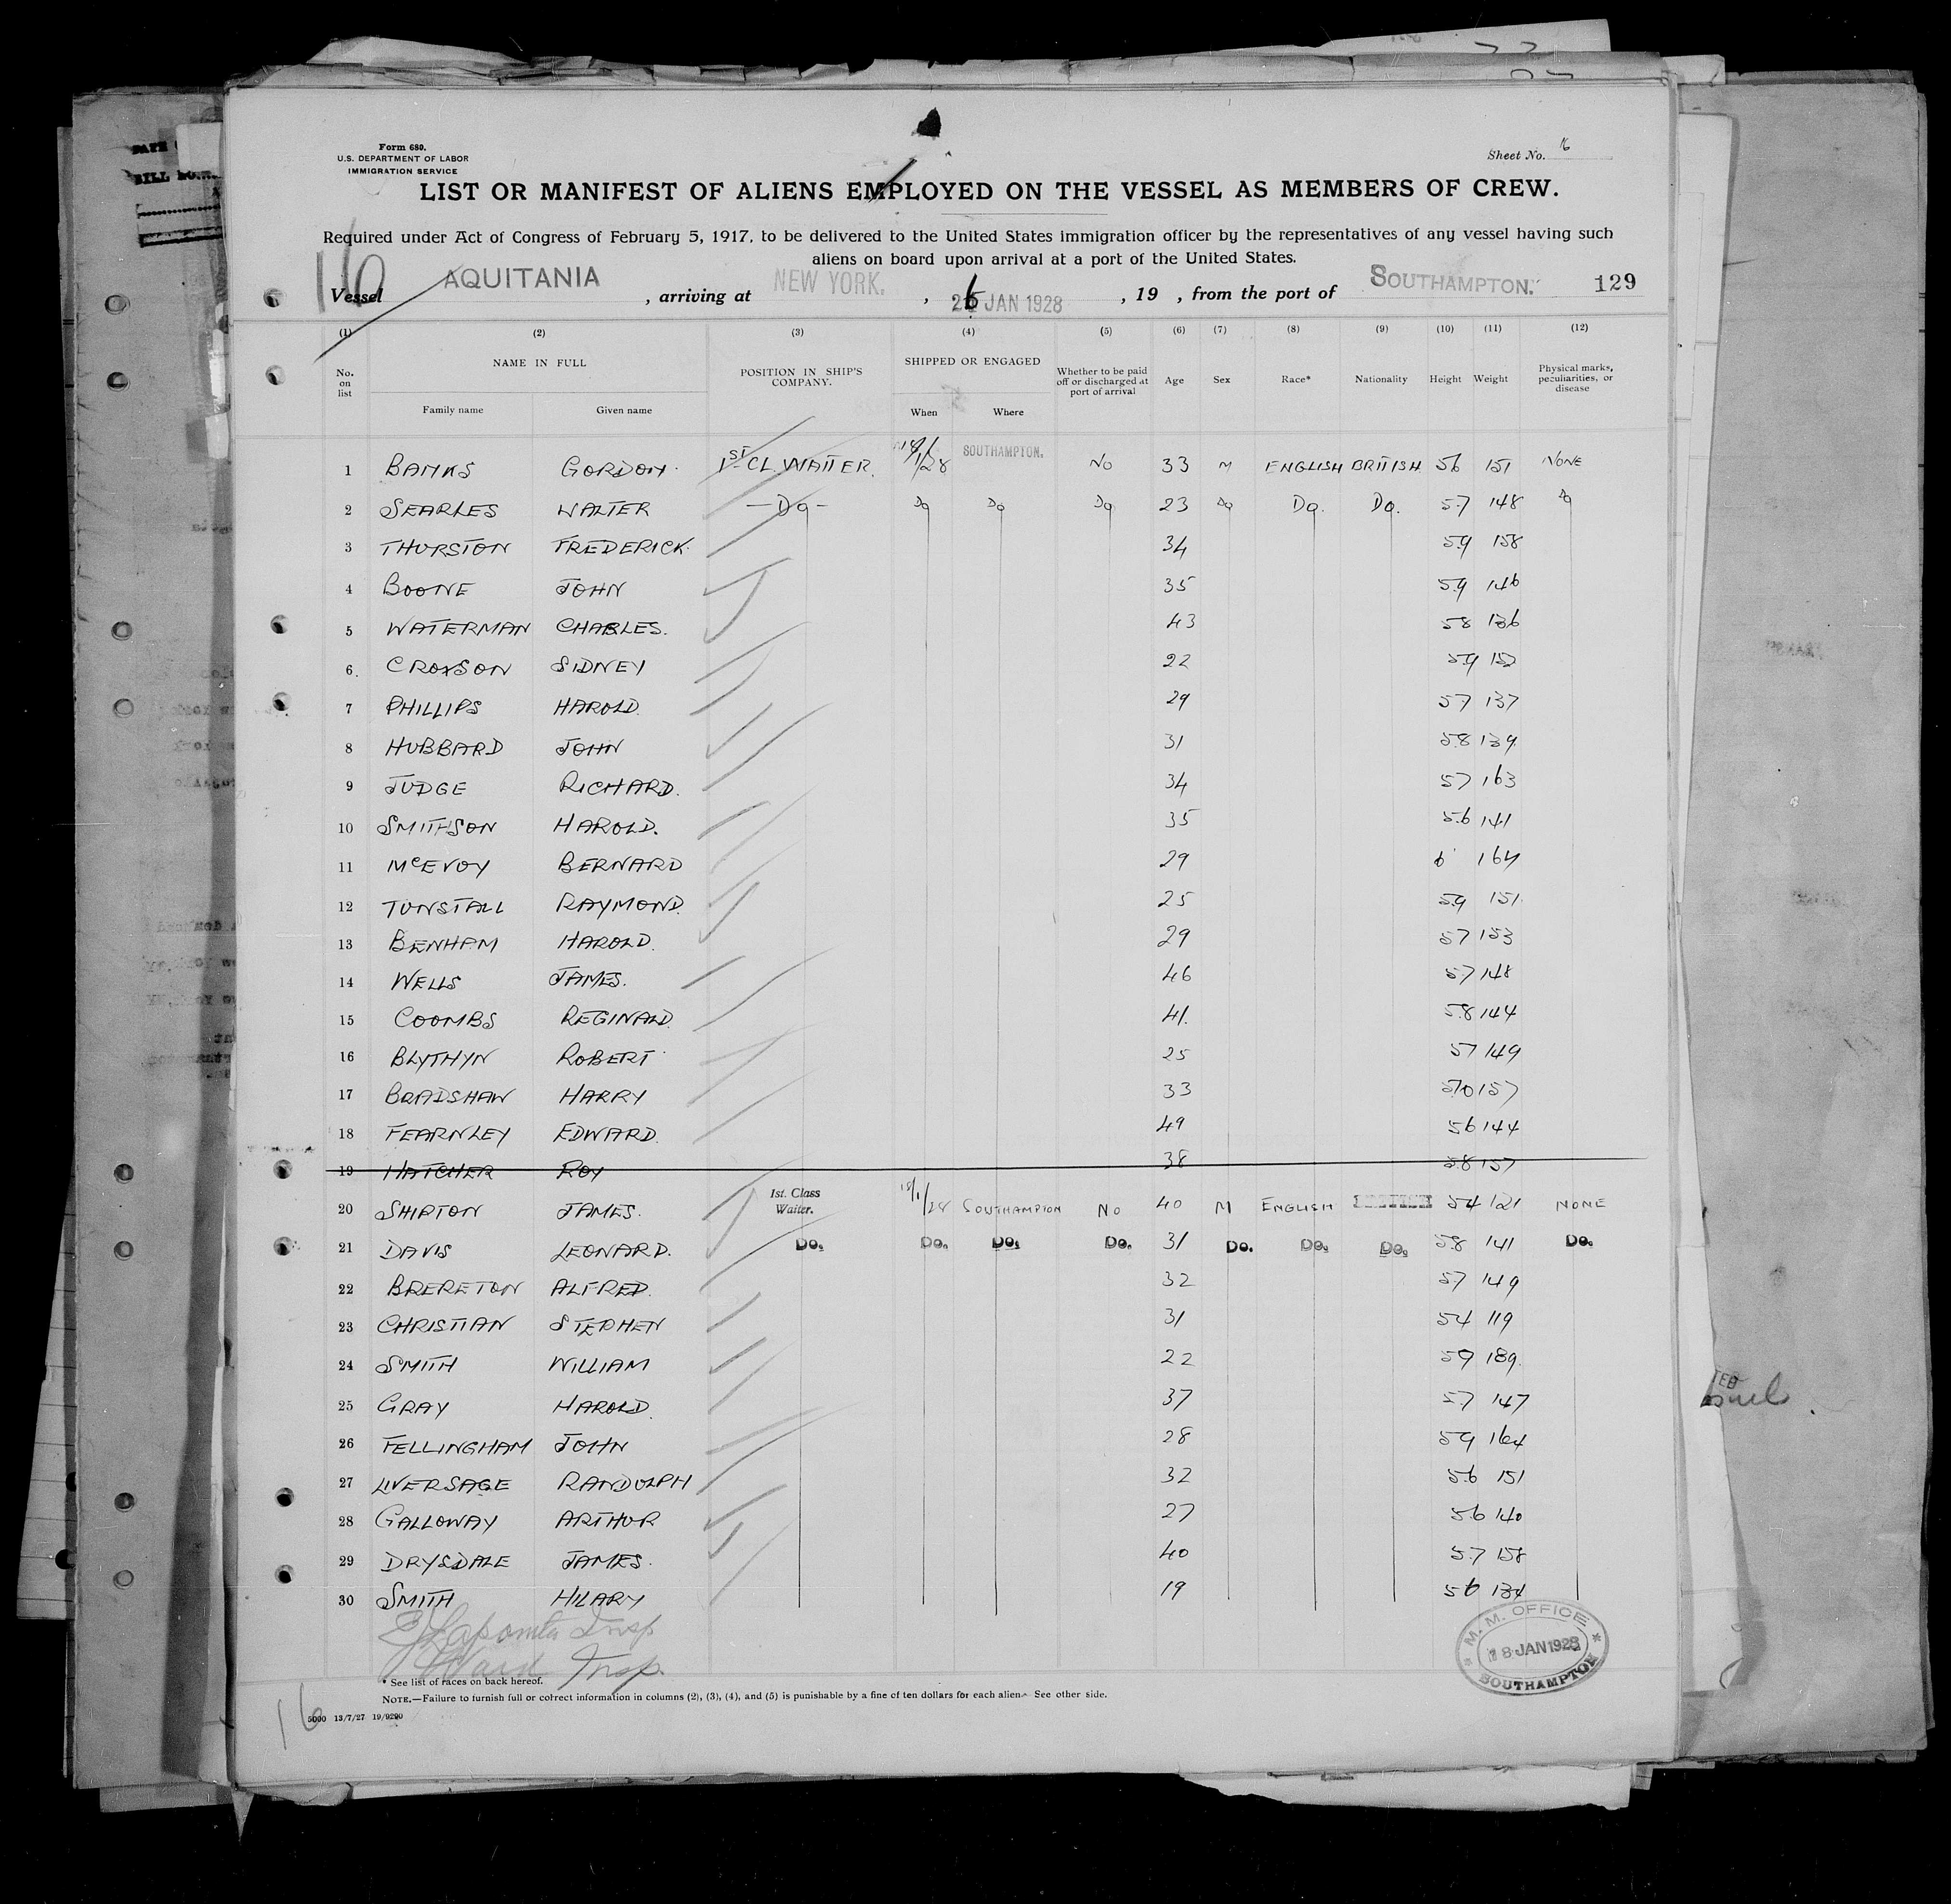 Form 680.
U.S. DEPARTMENT OF LABOR
IMMIGRATION SERVICE
Sheet No. 16
LIST OR MANIFEST OF ALIENS EMPLOYED ON THE VESSEL AS MEMBERS OF CREW.
Required under Act of Congress of February 5, 1917, to be delivered to the United States immigration officer by the representatives of any vessel having such
aliens on board upon arrival at a port of the United States.
16
Vessel AQUITANIA, arriving at NEW YORK., JAN 1928, 19 , from the port of SOUTHAMPTON. 129
(1) (2) (3) (4) (5) (6) (7) (8) (9) (10) (11) (12)
No. on list NAME IN FULL POSITION IN SHIP'S COMPANY. SHIPPED OR ENGAGED Whether to be paid off or discharged at port of arrival Age Sex Race* Nationality Height Weight Physical marks, peculiarities, or disease
Family name Given name When Where
1 BANKS GORDON. 1ST CL. WAITER. 18/1/28 SOUTHAMPTON. NO 33 M ENGLISH BRITISH 56 151 NONE
2 SEARLES WALTER - Do - Do Do Do 23 Do Do. Do. 5.7 148 Do
3 THURSTON FREDERICK. 34 5.9 158
4 BOONE JOHN 35 5.9 146
5 WATERMAN CHARLES. 43 58 136
6. CROXSON SIDNEY 22 5.9
7 PHILLIPS HAROLD. 29 57 137
8 HUBBARD JOHN 31 5.8 139
9 JUDGE RICHARD. 34 57 163
10 SMITHSON HAROLD. 35 5.6 141
11 McEVOY BERNARD 29 6' 164
12 TUNSTALL RAYMOND. 25 5.9 151.
13 BENHAM HAROLD. 29 57 153
14 WELLS JAMES. 46 5.7 148
15 COOMBS REGINALD. 41. 5.8 144
16 BLYTHYN ROBERT 25 57 149
17 BRADSHAW HARRY 33 5.10 157
18 FEARNLEY EDWARD. 49 56 144
19 HATCHER ROY 38 5.8 157
20 SHIPTON JAMES. 1st. Class Waiter. 18/1/28 SOUTHAMPTON NO 40 M ENGLISH BRITISH 54 121 NONE
21 DAVIS LEONARD. Do. Do. Do. Do. 31 Do. Do. Do. 5.8 141 Do.
22 BRERETON ALFRED. 32 57 149
23 CHRISTIAN STEPHEN 31 54 119
24 SMITH WILLIAM 22 59 189.
25 GRAY HAROLD. 37 57 147
26 FELLINGHAM JOHN 28 59 164
27 LIVERSAGE RANDOLPH 32 5.6 151
28 GALLOWAY ARTHUR 27 5.6 140
29 DRYSDALE JAMES. 40 5.7 158
30 SMITH HILARY 19 56 134
Insp
Ward Insp.
M. M. OFFICE
18 JAN 1928
SOUTHAMPTON
* See list of races on back hereof.
NOTE.—Failure to furnish full or correct information in columns (2), (3), (4), and (5) is punishable by a fine of ten dollars for each alien. See other side.
5000 13/7/27 19/9290
16